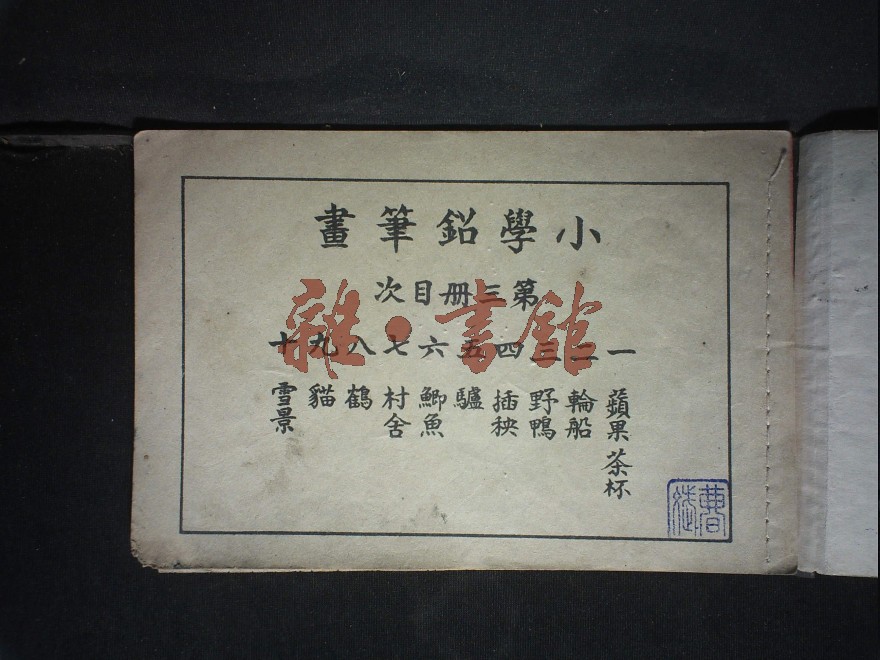 小學鉛筆畫
第三冊目次
一 蘋果 茶杯
二 輪船
三 野鴨
四 插秧
五 驢
六 鯽魚
七 村舍
八 鶴
九 貓
十 雪景
雜·書館